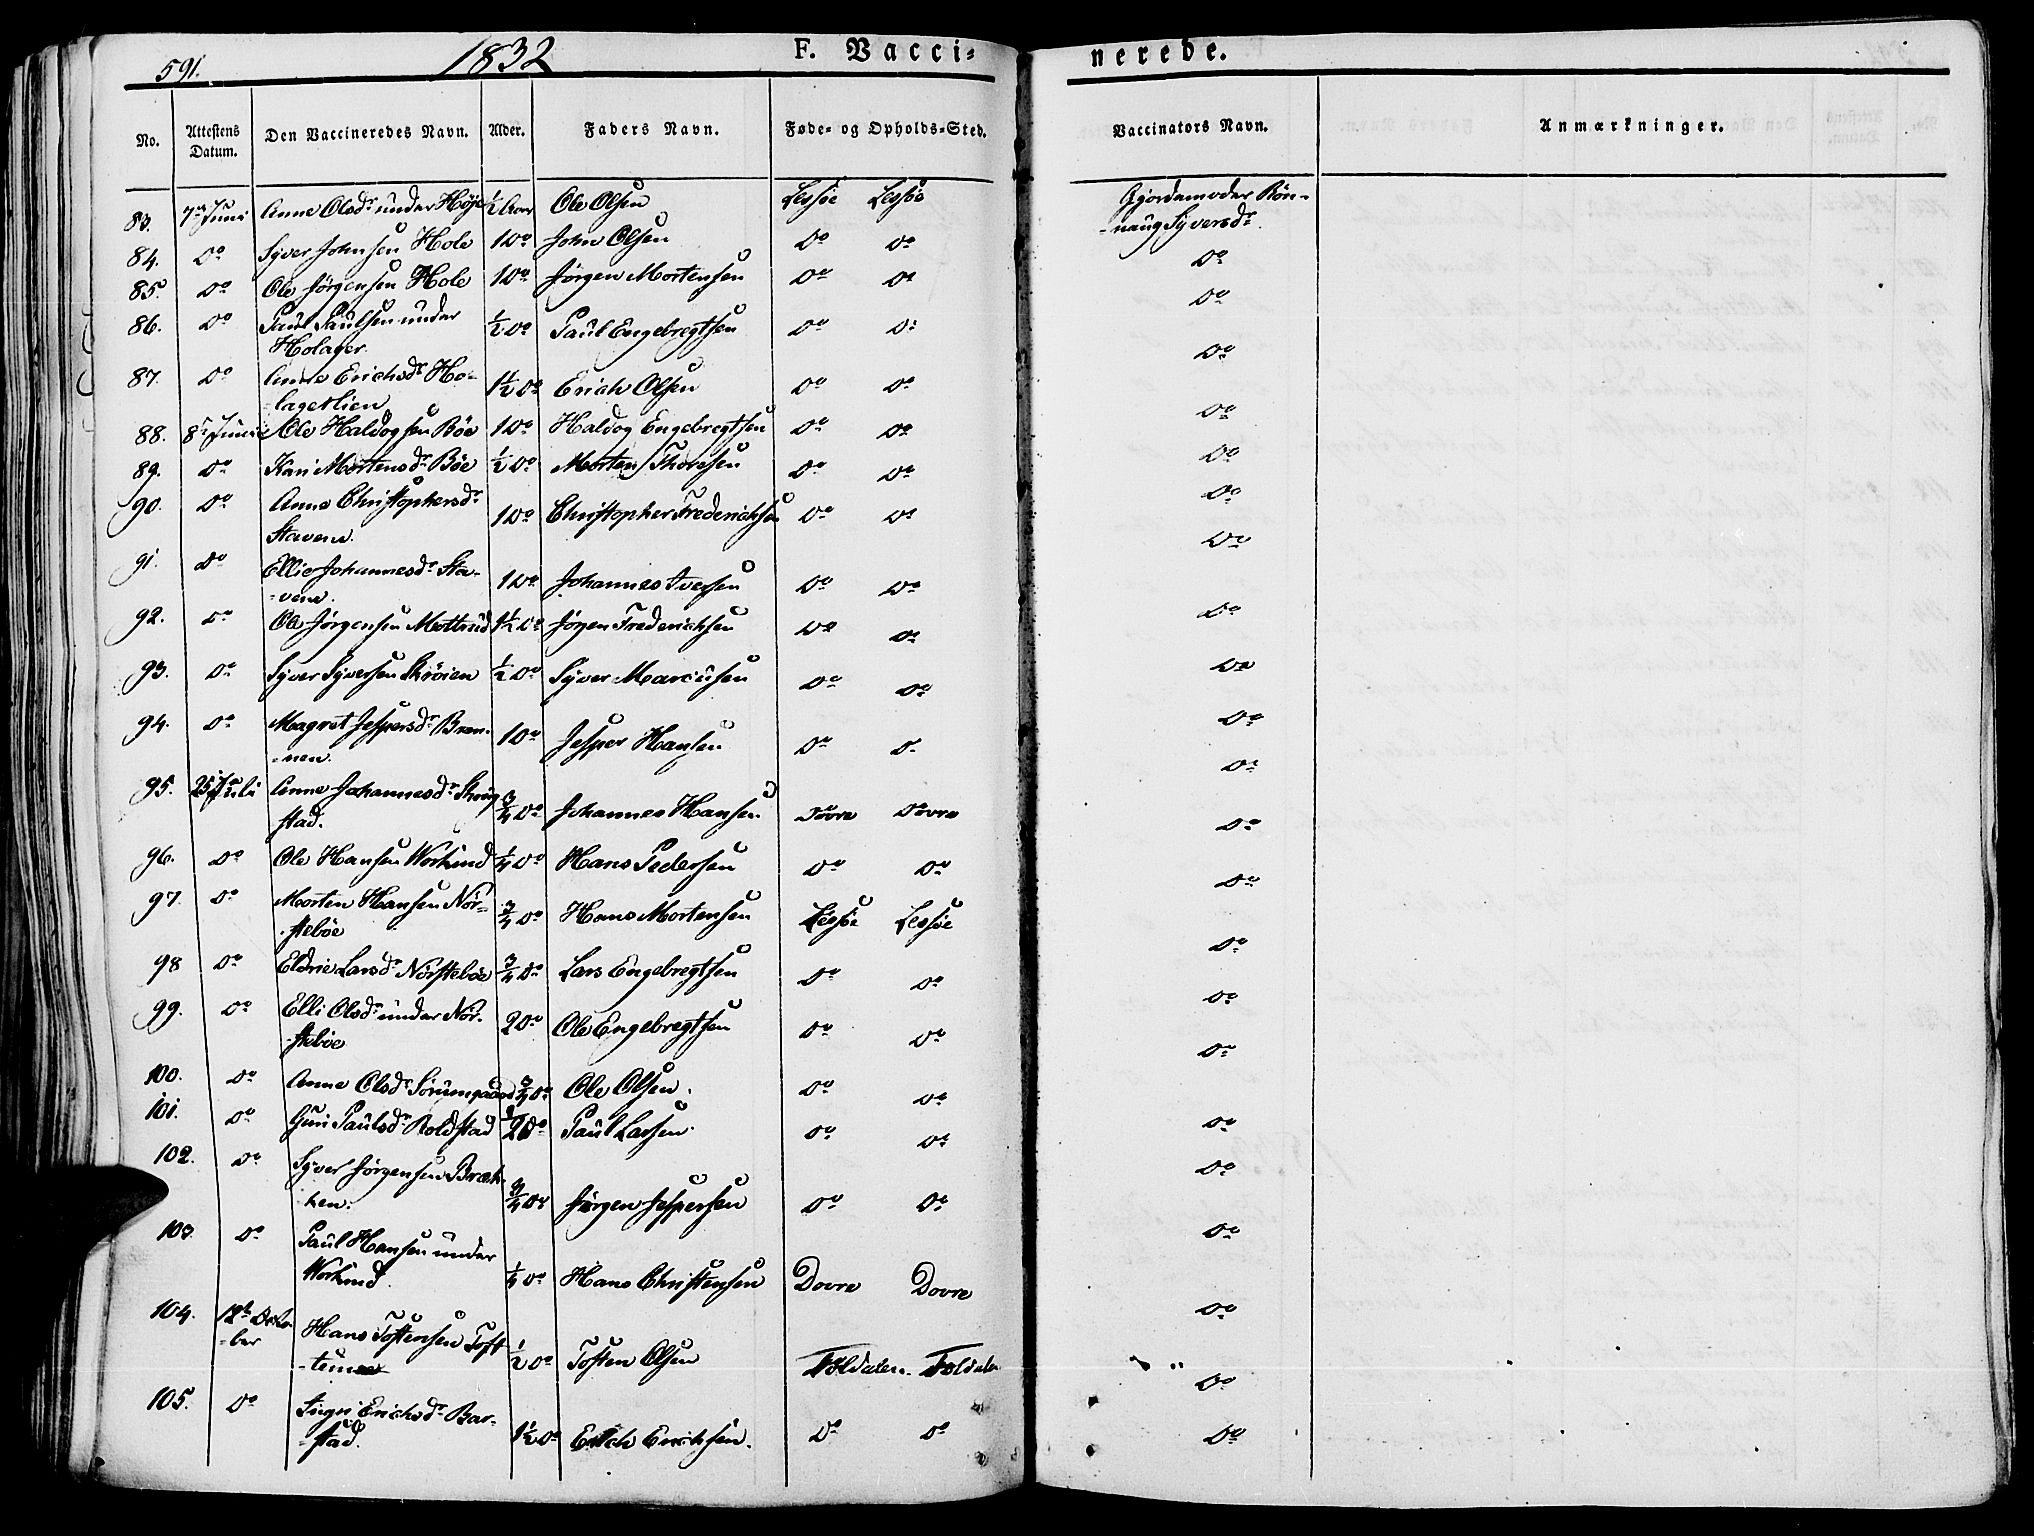 591. 1832 F. Vacci-
nerede.
No. Attestens Datum. Den Vaccineredes Navn. Alder. Faders Navn. Føde- og Opholds-Sted. Vaccinators Navn. Anmærkninger.
83. 7de Juni Anne Olsdr under Höje ½ Aar Ole Olsen Lessöe Lessöe Gjordemoder Rön-
-naug Syversdr.
84. Do Syver Johnsen Hole 1 Do John Olsen Do Do Do
85. Do Ole Jörgensen Hole 1 Do Jörgen Mortensen Do Do Do
86. Do Paul Paulsen under ½ Do Paul Engebregtsen Do Do Do
Holager.
87. Do Anne Erichsdr Ho- 1½ Do Erich Olsen Do Do Do
-lagerlien
88. 8de Juni Ole Haldogsen Böe 1 Do Haldog Engebregtsen Do Do Do
89. Do Kari Mortensdr Böe ½ Do Morten Thoresen Do Do Do
90. Do Anne Christophersdr 1 Do Christopher Frederichsen Do Do Do
Stavem.
91. Do Ellie Johannesdr Sta- 1 Do Johannes Iversen Do Do Do
-vem.
92. Do Ole Jörgensen Mottrud 1½ Do Jörgen Frederichsen Do Do Do
93. Do Syver Syversen Skröien ½ Do Syver Marcusen Do Do Do
94. Do Magret Jespersdr Bren- 1 Do Jesper Hansen Do Do Do
-nen.
95. 25 Juli Anne Johannesdr Skoug ¾ Do Johannes Hansen Dovre Dovre Do
stad.
96. Do Ole Hansen Workind ¼ Do Hans Pedersen Do Do Do
97. Do Morten Hansen Nör- ¾ Do Hans Mortensen Lessöe Lessöe Do
-steböe
98 Do Eldrie Larsdr Nörsteböe ¾ Do Lars Engebregtsen Do Do Do
99. Do Elli Olsdr under Nör- 2 Do Ole Engebregtsen Do Do Do
-steböe
100. Do Anne Olsdr Sörumgaard ¾ Do Ole Olsen. Do Do Do
101. Do Guri Paulsdr Roldstad Do Paul Larsen. Do Do Do
102. Do Syver Jörgensen Bræk- ¾ Do Jörgen Jespersen Do Do Do
ken.
103. Do Paul Hansen under ¼ Do Hans Christensen Dovre Dovre Do
Workind.
104. 18de Octo- Hans Tostensen Toft ½ Do Tosten Olsen Foldalen. Foldalen Do
-ber
105. Do Siegri Erichsdr Bar- 1½ Do Erich Erichsen. Do Do Do
-stad.